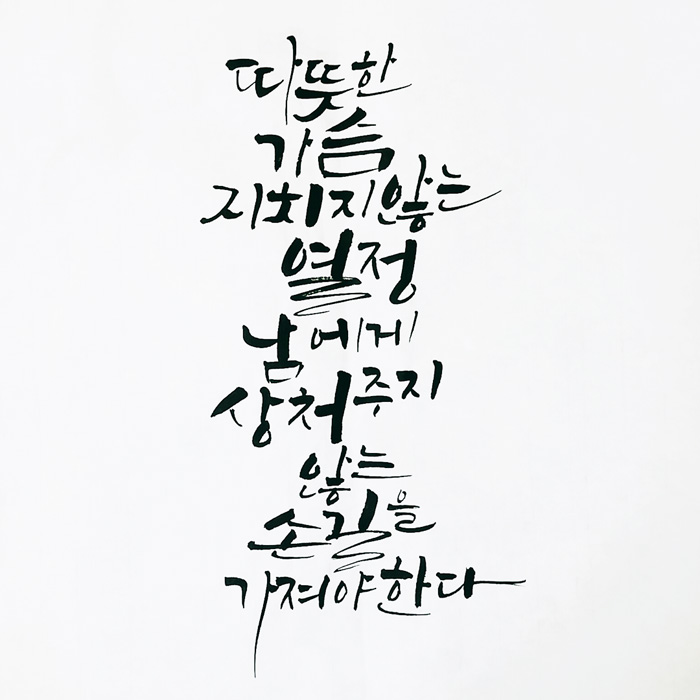 따뜻한
가슴
지치지않는
열정
남에게
상처주지
않는
손길을
가져야한다